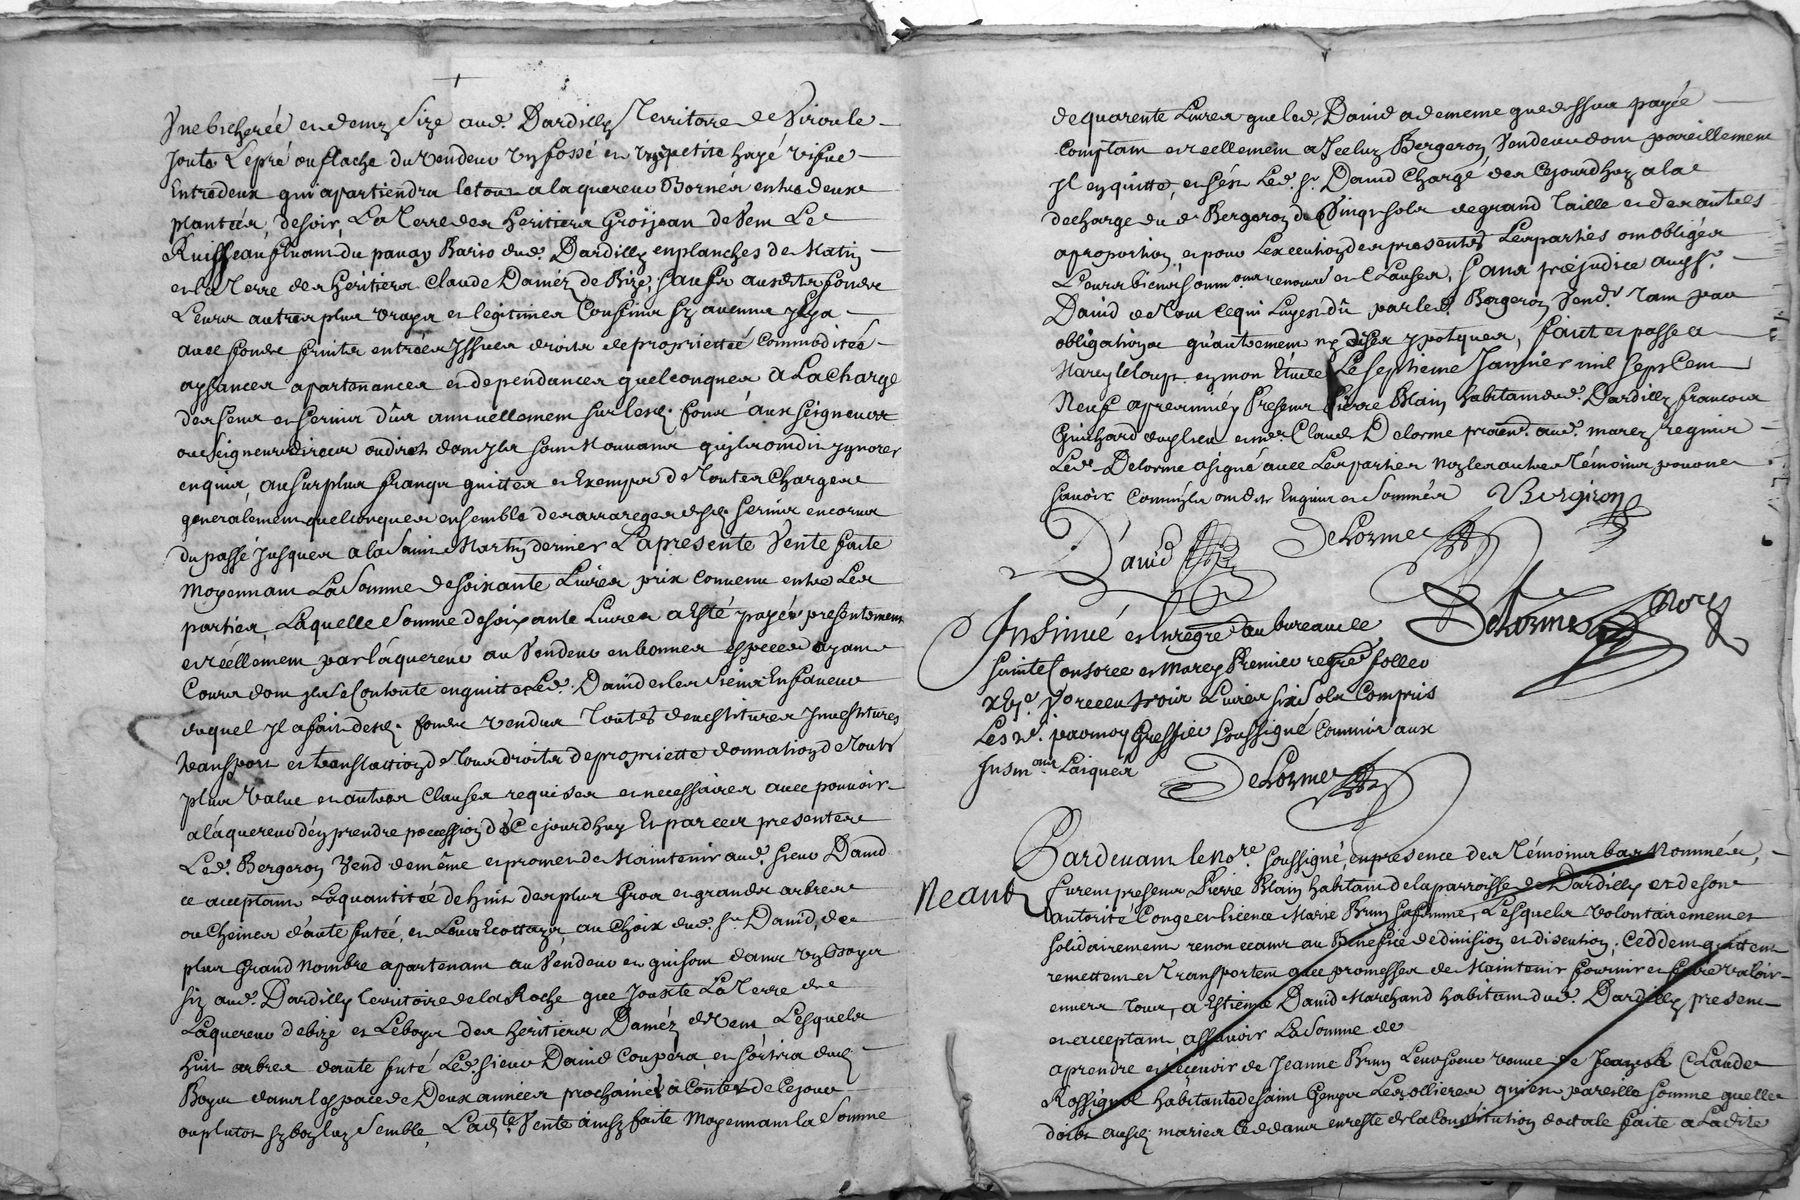 Une bicherée en demy size aud. Dardilly Territoire de Viroule
Joute Le pré ou flache du vendeur un fossé et une petite haye visue
Entredeux qui apartiendra le tout a laquereur Bornés entre deux
plantiés, de soir, La Terre des heritiers Grosjean de vent Le
Ruisseau fluant du Bario dud. Dardilly en planches de Matin
et la Terre des heritiers Claude Daméz de Bize, sauf ausdits fonds
Leurs autres plus vrays et legitimes Confins sy aucuns y a
avec fonds fruits entrées Issues droits de proprietté Commodités
aysances apartenances et dependances quelconques a La charge
des sens et servis dûs annuellement sur lesd. fonds aux seigneurs
ou seigneur directs dont ils sont Mouvans quils ont dit ygnorer
enquis, au surplus francqs quittes et Exempts de Toutes Charges
generalement quelconques ensemble des arrareges desd. servis encorus
du passé Jusques a la Saint Martin dernier La presente Vente faite
Moyennant La somme de soixante Livres prix convenu entre Les
parties, Laquelle somme de soixante Livres a Esté payée presentement
et reellement par l'aquereur au Vendeur en bonnes especes ayant
Cours dont il se Contente en quitte Led. David et les siens En faveur
duquel Il a fait desd. fonds vendus Toutes devestitures Investitures
transport et translattion de Tous droits de proprietté donnation de Toute
plus value et autres Clauses requises et necessaires avec pouvoir
a láquereur d'en prendre pocession dé Cejourdhuy Et par ces presentes
Led. Bergeron Vend de même et promet de Maintenir aud. sieur David
ce acceptant La quantitée de huit des plus Gros et grands arbres
ou Cheines d'aute futée, et Leurs Ecottays au Choix dud. sr. David, de
plus Grand Nombre apartenant au Vendeur et qui sont dans un Boys
sis aud. Dardilly Territoire de la Roche que Jouste La Terre de
Laquereur de bize et Le boys des heritiers Daméz de vent Lesquels
huit arbres daute futé Led. sieur David Coupera et sortira dud.
Boys dans l'espace de Deux années prochaines à conter de Cejour
ou plutost sy boy luy semble, Lad.te Vente ainsy faite Moyennant la somme
de quarente Livres que led. David a de meme que dessus payée
comptant et reellement a Iceluy Bergeron Vendeur dont pareillement
Il en quitte, et sést Led. sr. David Chargé dés Cejourdhuy a la
decharge du d. Bergeron de Cinq sols de grand Taille et des autres
a proportion, et pour L'execution des presentes Les parties ont obligés
Leurs biens soum.ons renoncé et Clauses, sans prejudice aud. sr.
David de Tout ce qui Luy est dû par led. Bergeron Vend.r Tant par
obligations qu'autrement ny dises ypotques, fait et passé a
Marcy le loup en mon Etude Le septieme Janvier mil sept cent
Neuf apres midy Presens Pierre Blain habitant dud. Dardilly francois
Guichard dud. lieu et me. Claude Delorme praticn. aud. marcy requis
Led. Delorme a signé avec Les parties Non les autres Témoins pour ne
savoir comm'ils ont dit Enquis et Sommés Bergiron
David Delorme
Delorme Nore
Insinué et enregré. au bureau de
Sainte Consorce et Marcy Premier regre. folleo
receu trois Livres six sols Compris
Les par moy Greffier soussigné commis aux
Insin.ons Laiques
Delorme
Neant
Pardevant le Nore. soussigné, en presence des Témoins bas Nommés,
furent presens Pierre Blain habitant de la parroisse de Dardilly et de son
autorité Conge et licence Marie Brun sa femme, Lesquels volontairement et
solidairement renonceant au Benefice de division et discution, Ceddent quittent
remettent et Transportent avec promesses de Maintenir fournir et faire valoir
envers Tous, a Estienne David Marchand habitant dud. Dardilly present
et acceptant, assavoir La somme de
a prendre et recevoir de Jeanne Brun Leur soeur veuve de Jean Claude
Rossignol habitante de saint Genys Les ollieres qui est pareille somme quelle
doibt ausd. mariés ceddans en reste de la Constitution dottale faite a Ladite